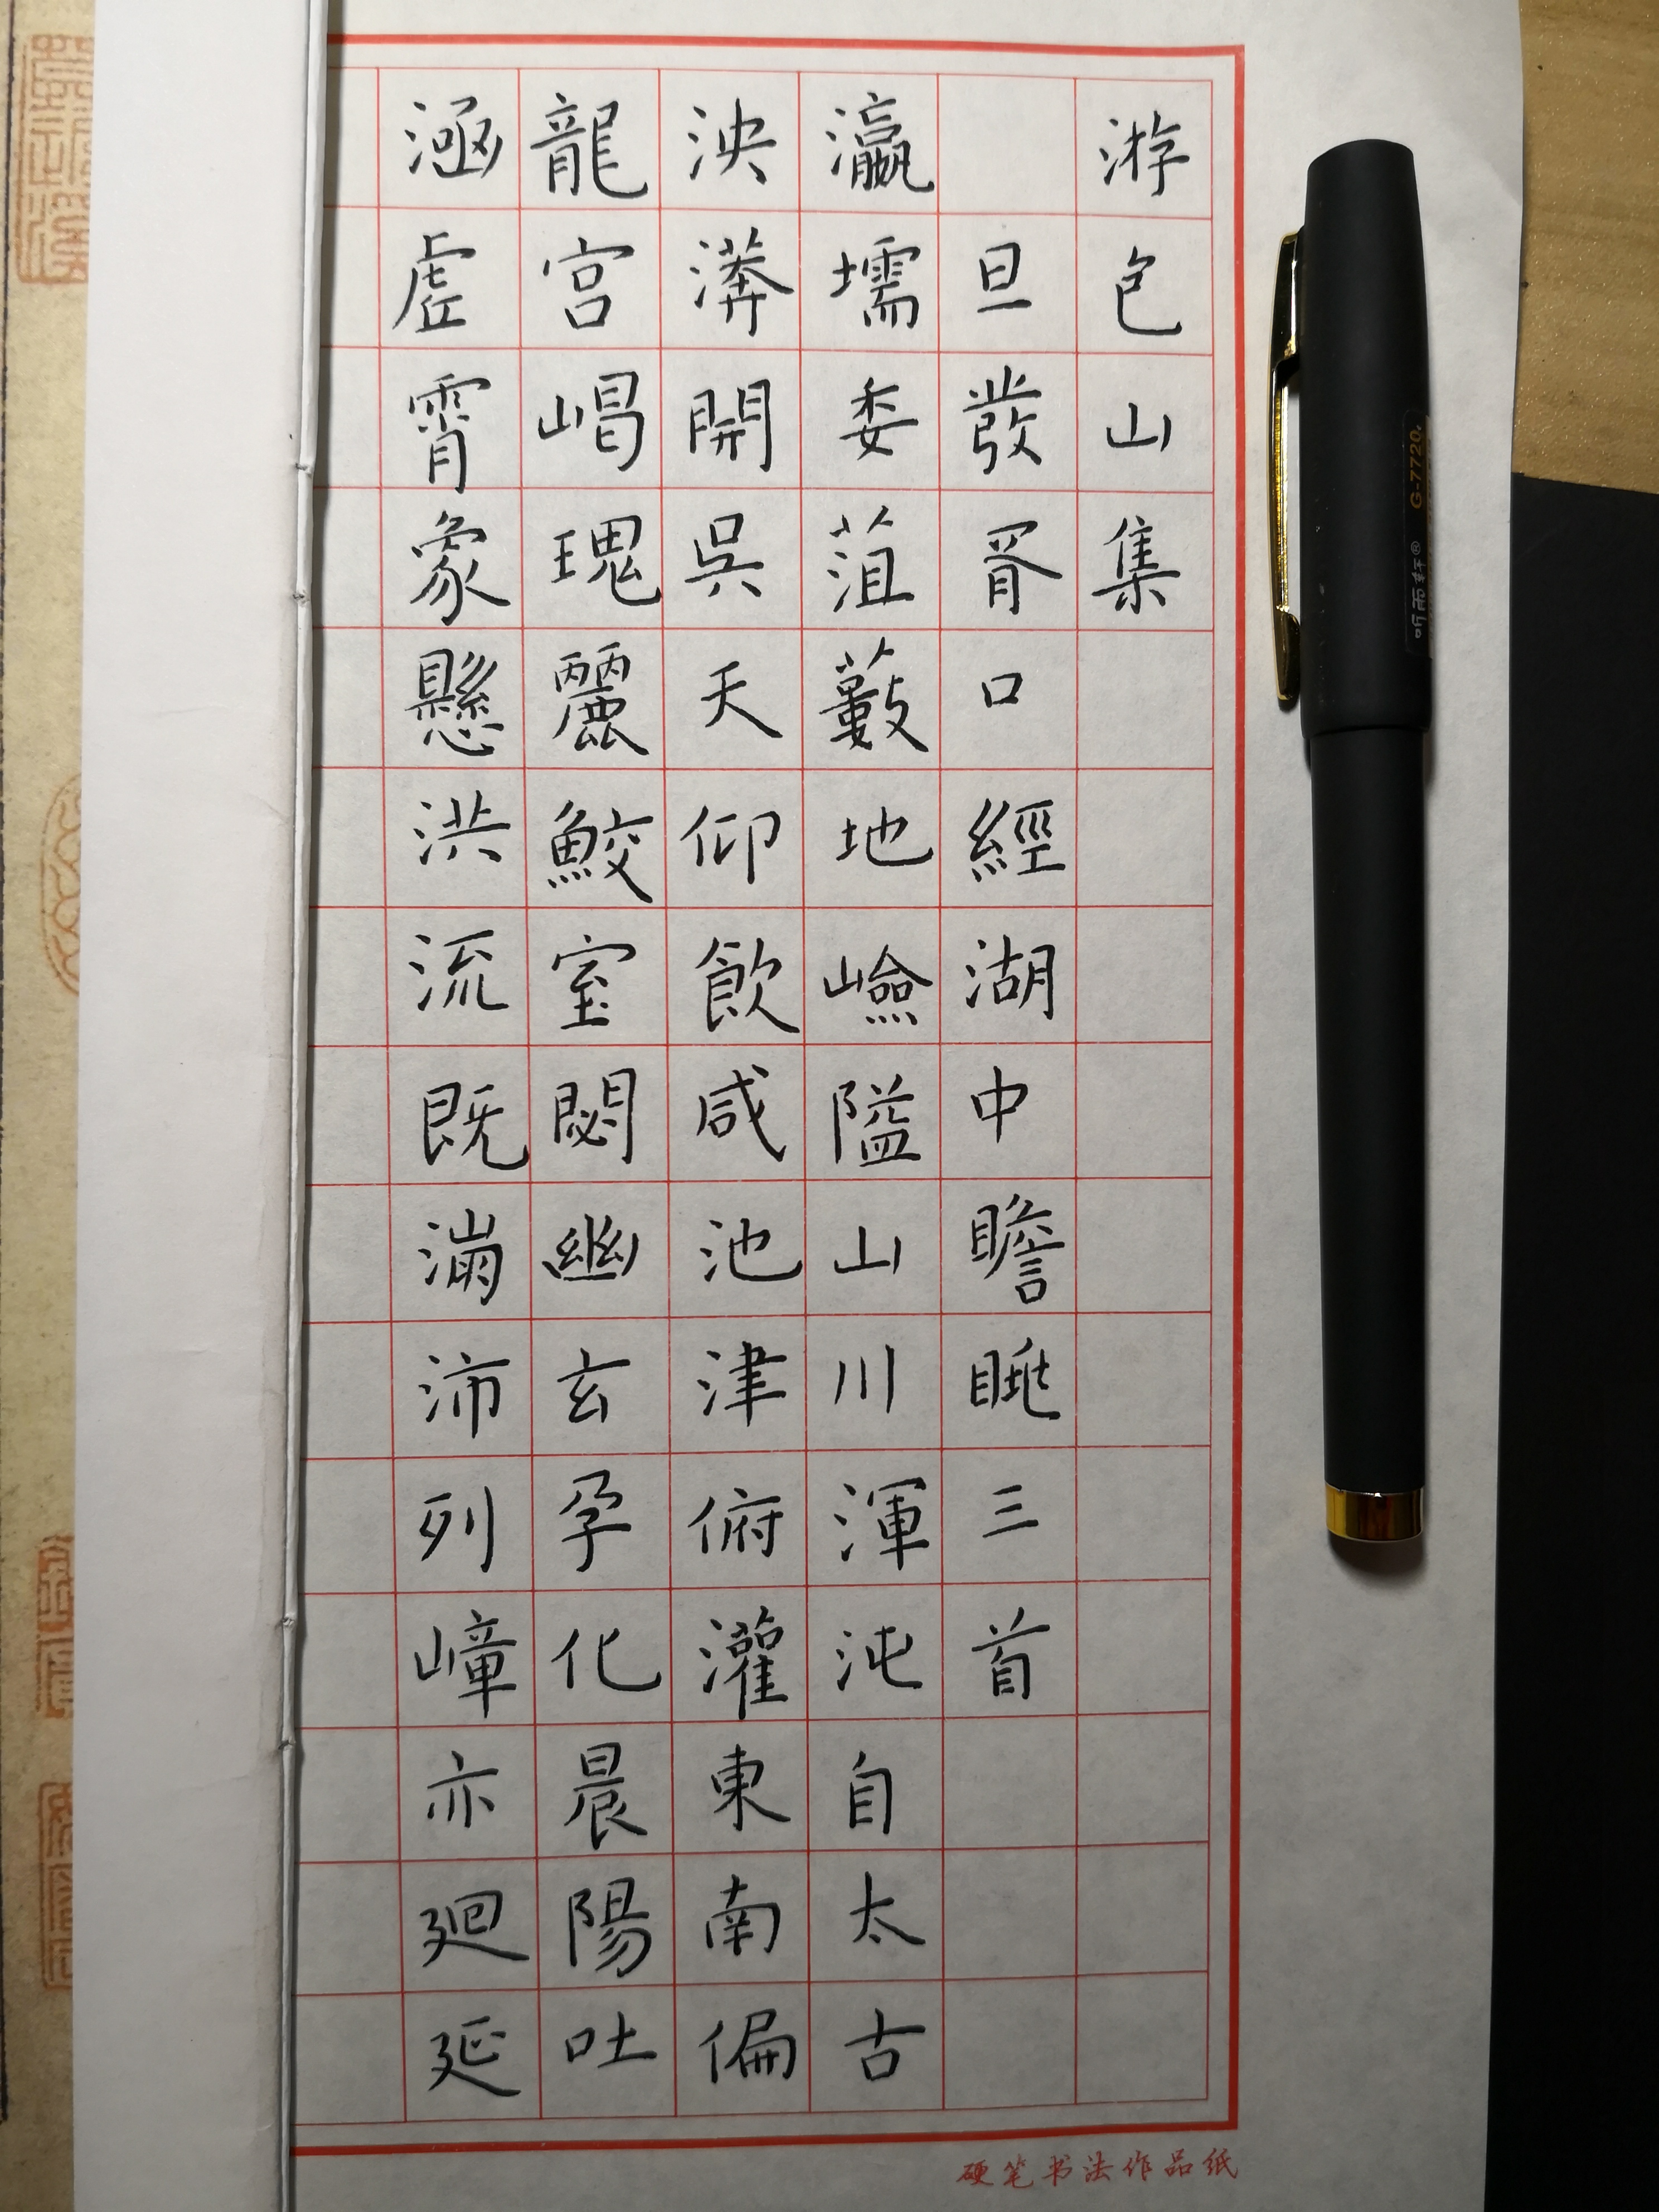 游包山集
旦發胥口經湖中瞻眺三首
瀛壖委菹藪地嶮隘山川渾沌自太古
泱漭開吳天仰飲咸池津俯灌東南偏
龍宮崿瑰麗鮫室閟幽玄孕化晨陽吐
涵虛霄象懸洪流既滂沛列嶂亦迴延
硬笔书法作品纸
G-7720